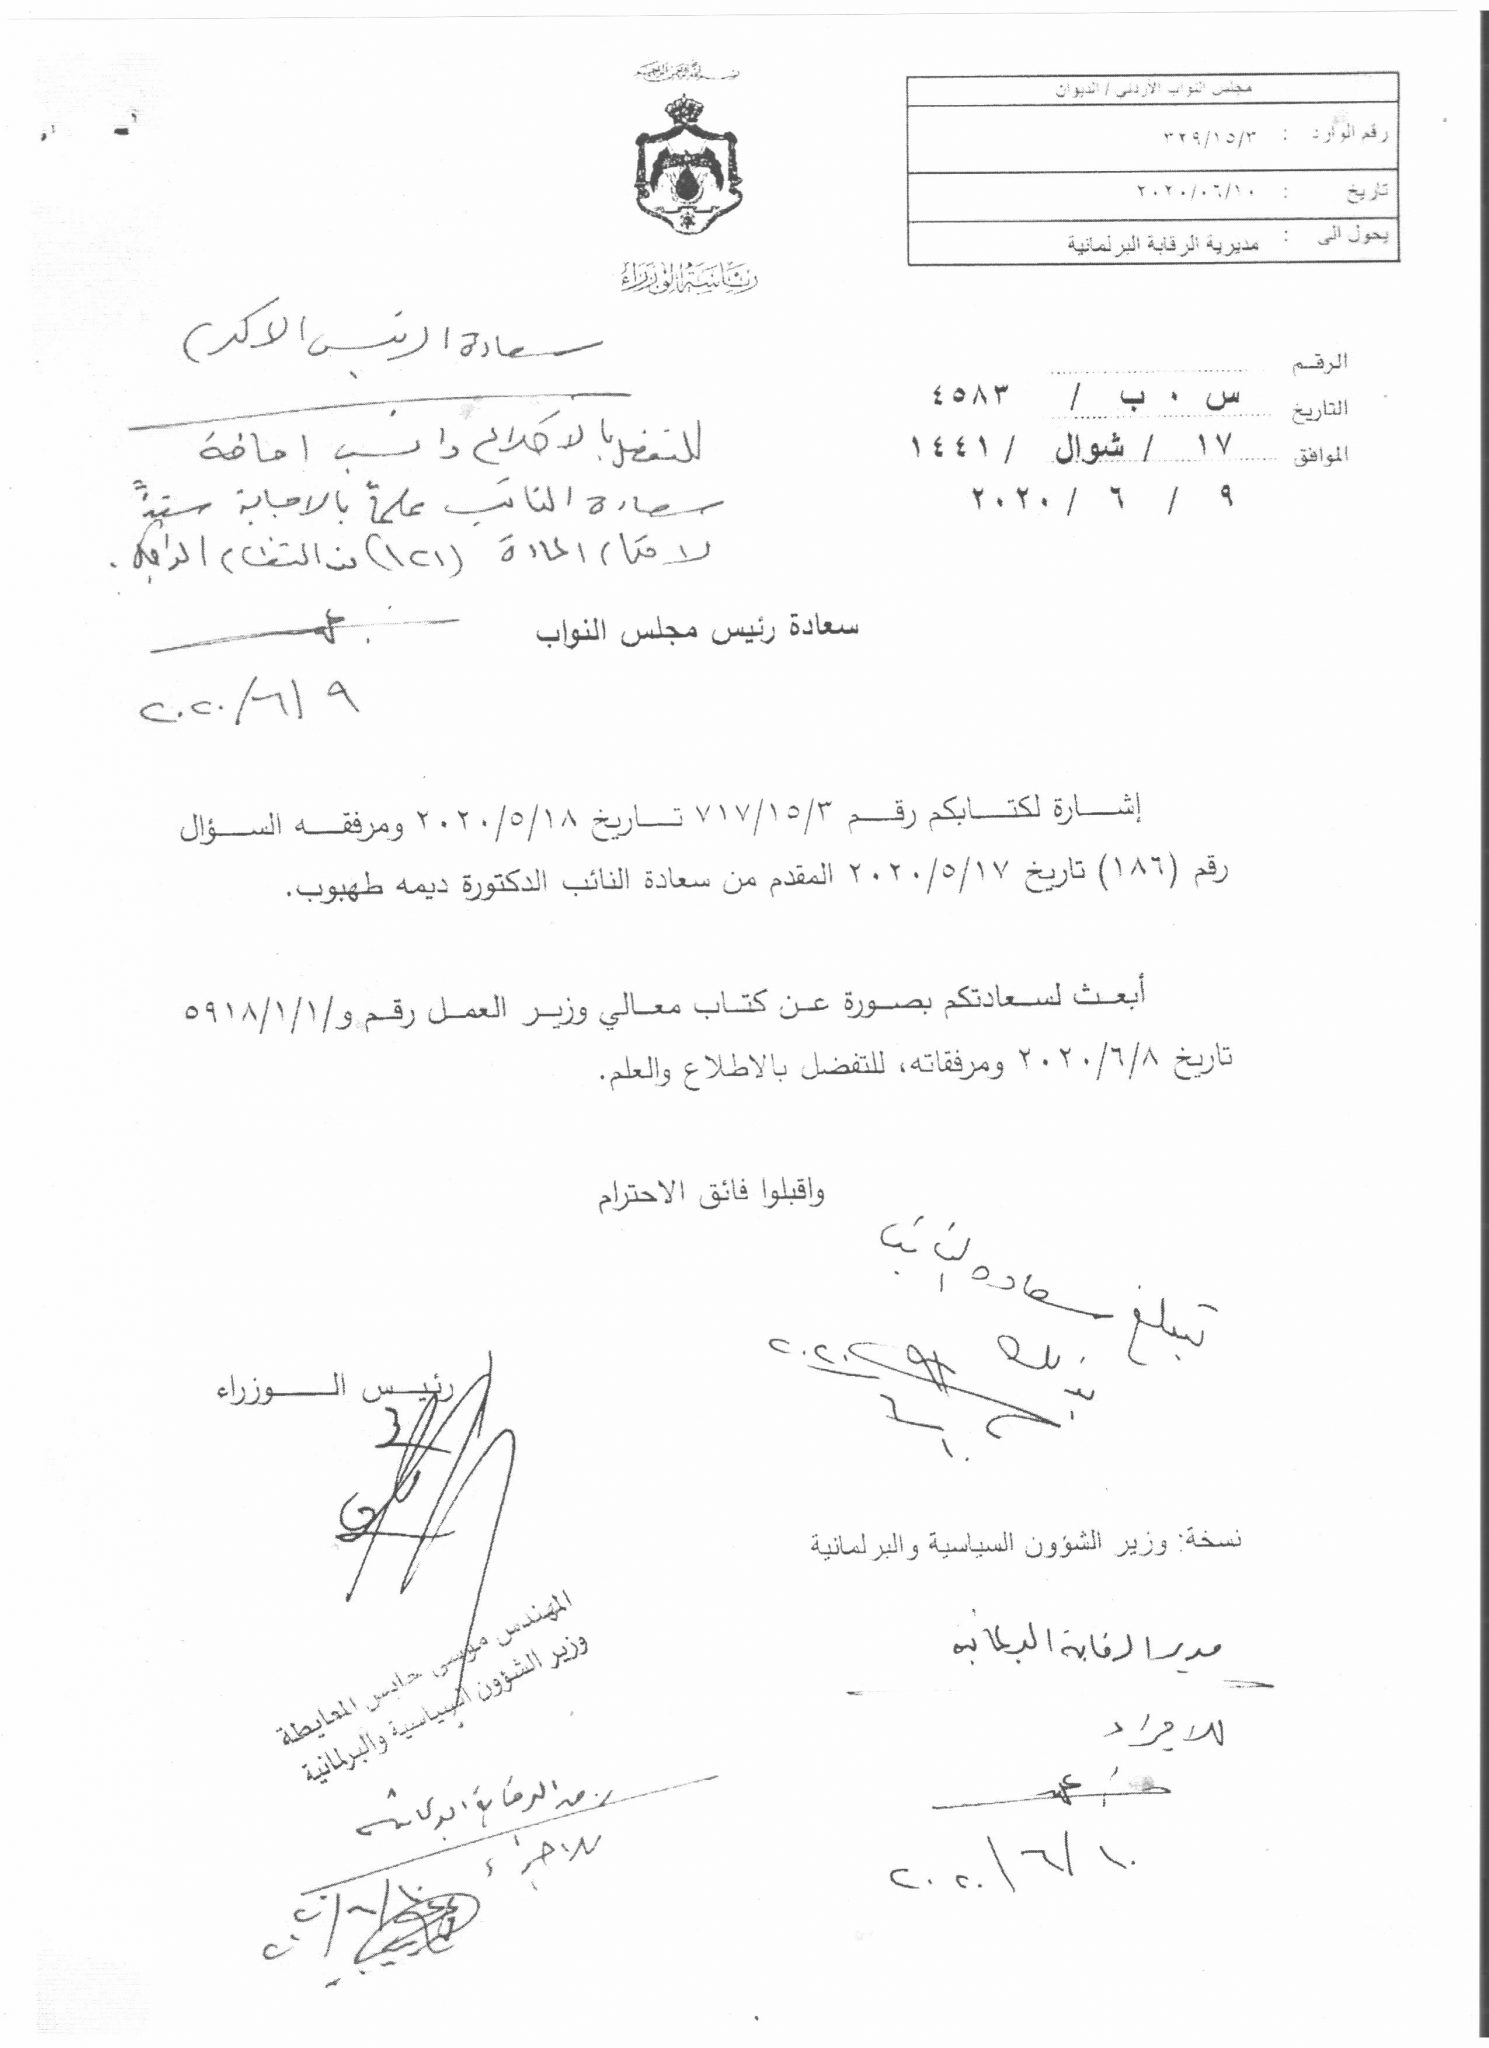 بسم الله الرحمن الرحيم
رئاسة الوزراء
مجلس النواب الأردني / الديوان
رقم الوارد : ٣٢٩/١٥/٣
تاريخ : ٢٠٢٠/٠٦/١٠
يحول الى : مديرية الرقابة البرلمانية
الرقم
س ٠ ب / ٤٥٨٣
التاريخ
١٧ / شوال / ١٤٤١
الموافق
٩ / ٦ / ٢٠٢٠
سعادة الرئيس الاكرم
للتفضل بالاطلاع وانسب احاطة
سعادة النائب علماً بالاجابة سنداً
لاحكام المادة (١٢١) من النظام الداخلي.
٢٠٢٠/٦/٩
سعادة رئيس مجلس النواب
إشارة لكتابكم رقم ٧١٧/١٥/٣ تاريخ ٢٠٢٠/٥/١٨ ومرفقه السؤال
رقم (١٨٦) تاريخ ٢٠٢٠/٥/١٧ المقدم من سعادة النائب الدكتورة ديمه طهبوب.
أبعث لسعادتكم بصورة عن كتاب معالي وزير العمل رقم و/٥٩١٨/١/١
تاريخ ٢٠٢٠/٦/٨ ومرفقاته، للتفضل بالاطلاع والعلم.
واقبلوا فائق الاحترام
تبلغ سعادة النائب
رئيس الوزراء
المهندس موسى حابس المعايطة
وزير الشؤون السياسية والبرلمانية
نسخة: وزير الشؤون السياسية والبرلمانية
مدير الرقابة البرلمانية
للاجراء
٢٠٢٠/٦/١٠
الرقابة البرلمانية
للاجراء
٢٠٢٠/٦/١٠